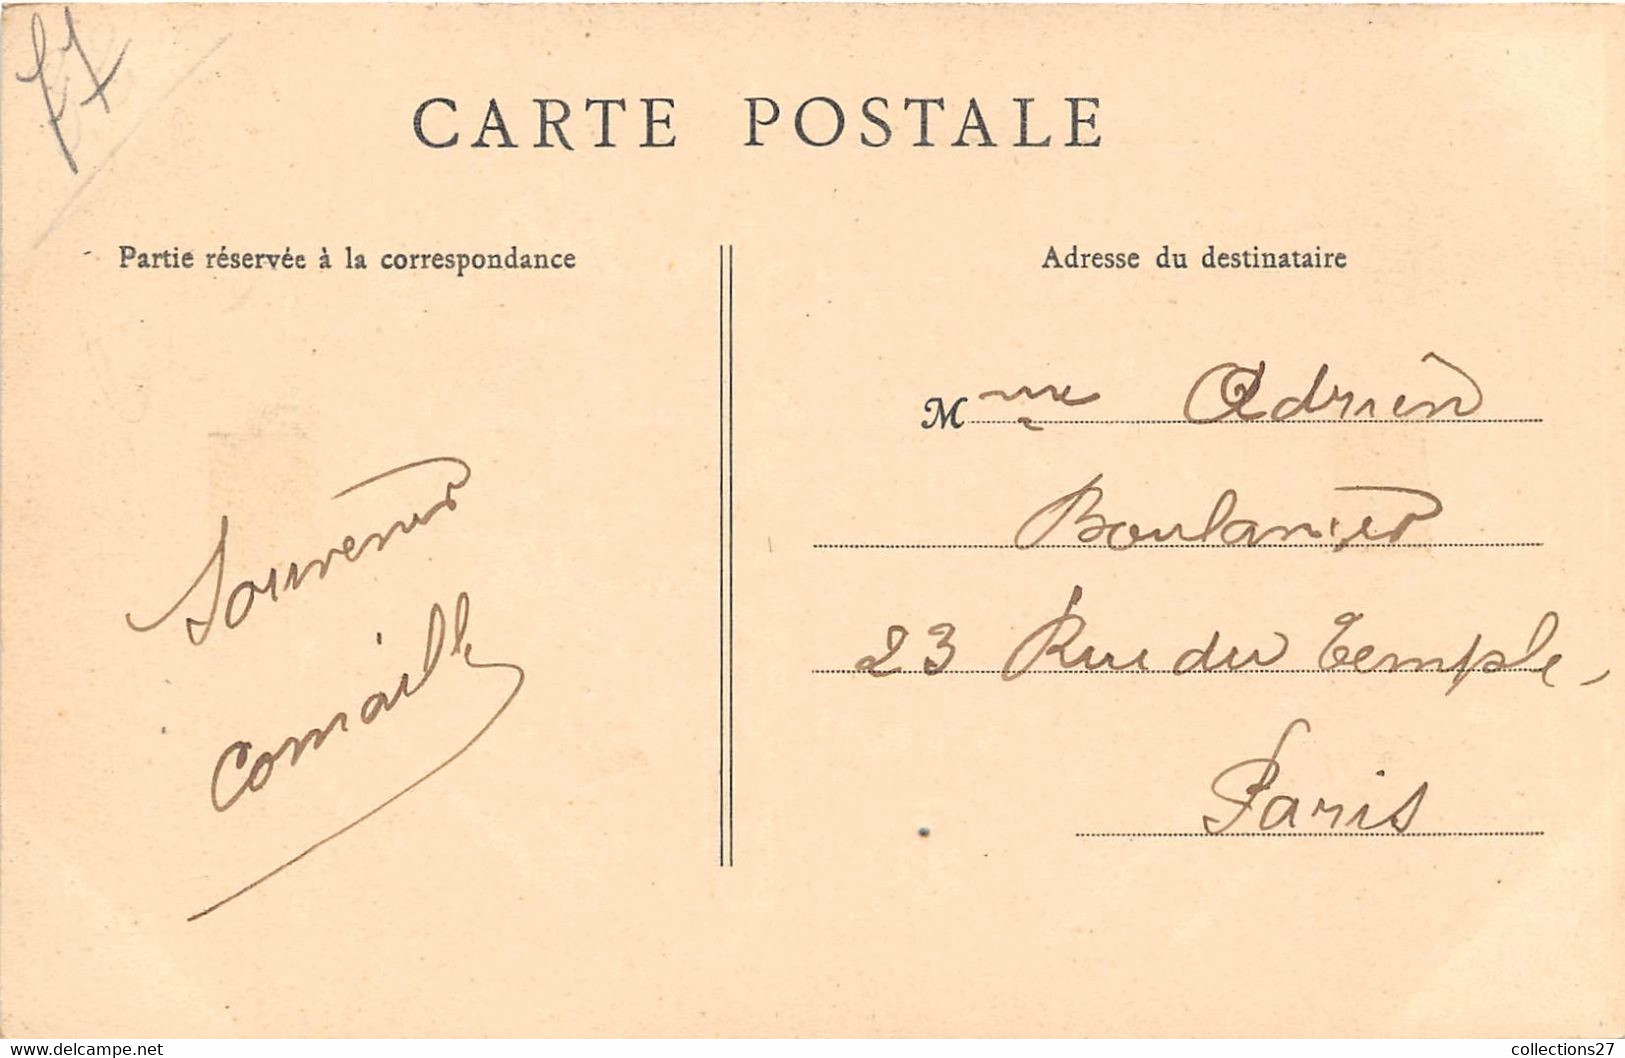 CARTE POSTALE
Partie réservée à la correspondance
Adresse du destinataire
Mme Adrien
23 Rue du Temple,
Paris
Souvenir
https://www.delcampe.net
collections27